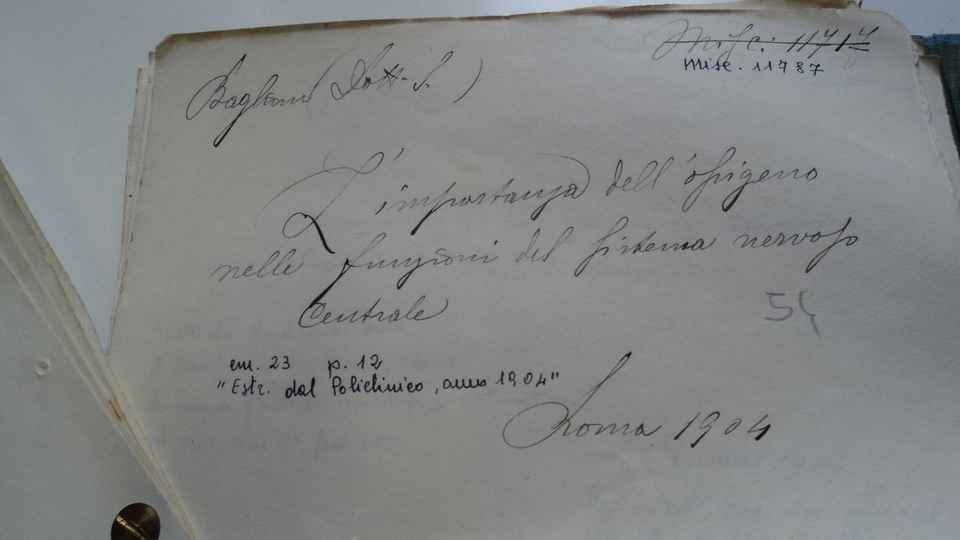 Misc. 11717
Misc. 11787
Baglioni (Dott. S.)
L'importanza dell'ossigeno
nelle funzioni del sistema nervoso
Centrale
54
cm. 23 p. 12
"Estr. dal Policlinico, anno 1904"
Roma 1904